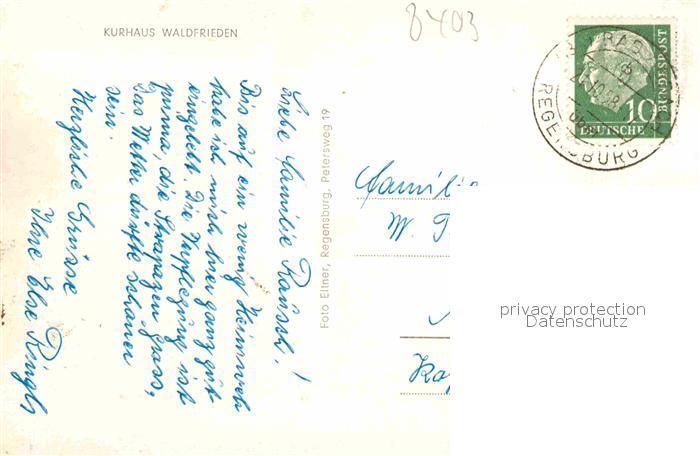 KURHAUS WALDFRIEDEN
8403
Liebe Familie Räussl!
Bis auf ein wenig Heimweh
habe ich mich hier ganz gut
eingelebt. Die Verpflegung ist
prima, die Strapazen gross,
Das Wetter dürfte schöner
sein.
Herzliche Grüsse
Ihre Else
Foto Ellner, Regensburg, Petersweg 19
Famili
W.
10
DEUTSCHE
BUNDESPOST
REGENSBURG
privacy protection
Datenschutz